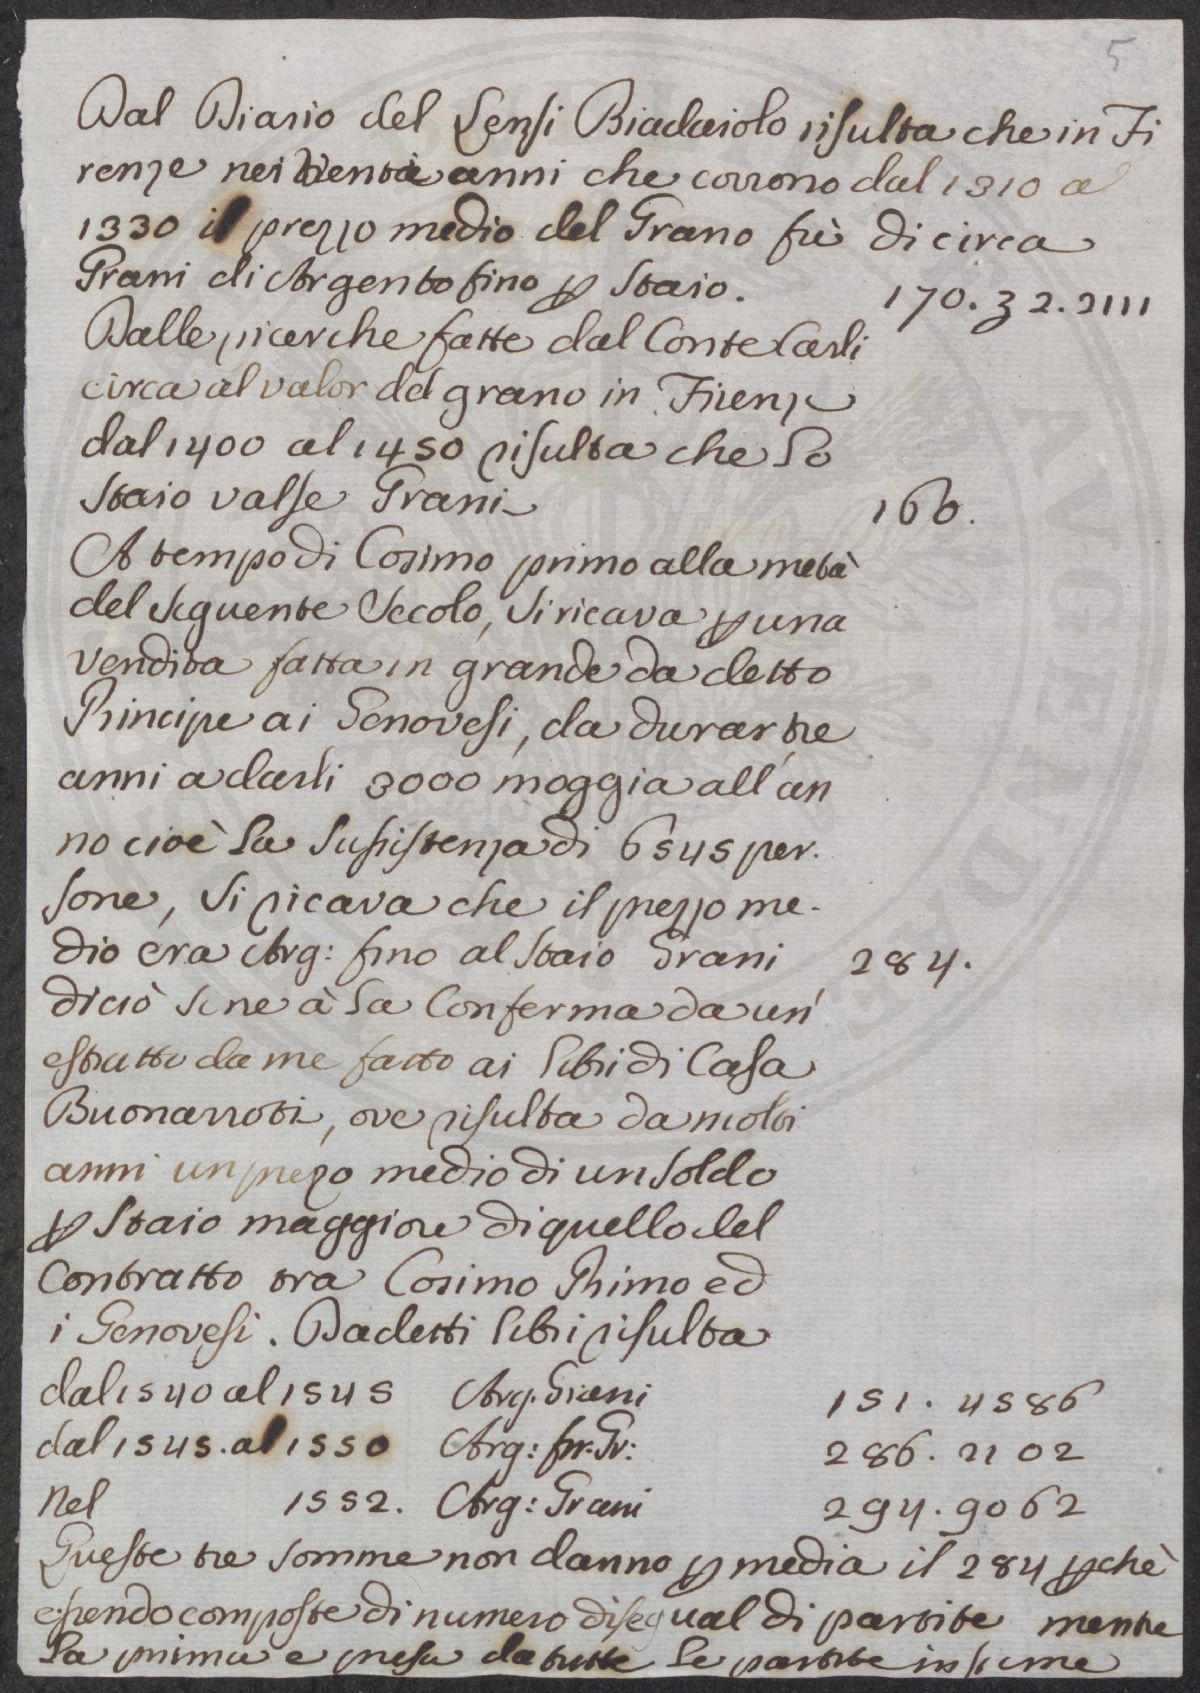 5
Dal Diario del Lensi Biadaiolo risulta che in Fi
renze nei venti anni che corrono dal 1310 al
1330 il prezzo medio del Grano fù di circa
Grani di Argento fino p Staio. 170.32.2111
Dalle ricerche fatte dal Conte Carli
circa al valor del grano in Firenze
dal 1400 al 1450 risulta che lo
Staio valse Grani 160.
A tempo di Cosimo primo alla metà
del seguente Secolo, si ricava p una
vendita fatta in grande da detto
Principe ai Genovesi, da durar tre
anni a darli 3000 moggia all'an
no cioè la sussistenza di 6545 per.
sone, si ricava che il prezzo me-
dio era Arg: fino al Staio Grani 284.
di ciò se ne à la Conferma da un'
estratto da me fatto ai Libri di Casa
Buonarroti, ove risulta da molti
anni un prezo medio di un Soldo
p Staio maggiore di quello del
Contratto tra Cosimo Primo ed
i Genovesi. Da detti Libri risulta
dal 1540 al 1545 Arg. Grani 151.4586
dal 1545. al 1550 Arg: Gr: 286.2102
Nel 1552. Arg: Grani 294.9062
Queste tre somme non danno p media il 284 pchè
essendo composte di numero disegual di partite mentre
la prima e presa da tutte le partite insieme